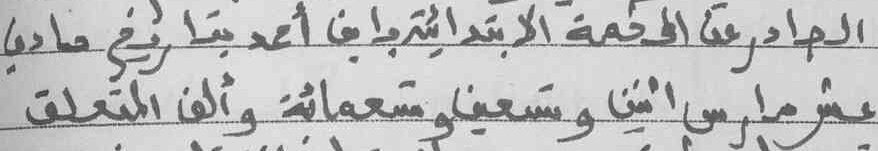 الصادر عن المحكمة الابتدائية بابن أحمد بتاريخ حادي
عشر مارس اثنين وتسعين وتسعمائة وألف المتعلق